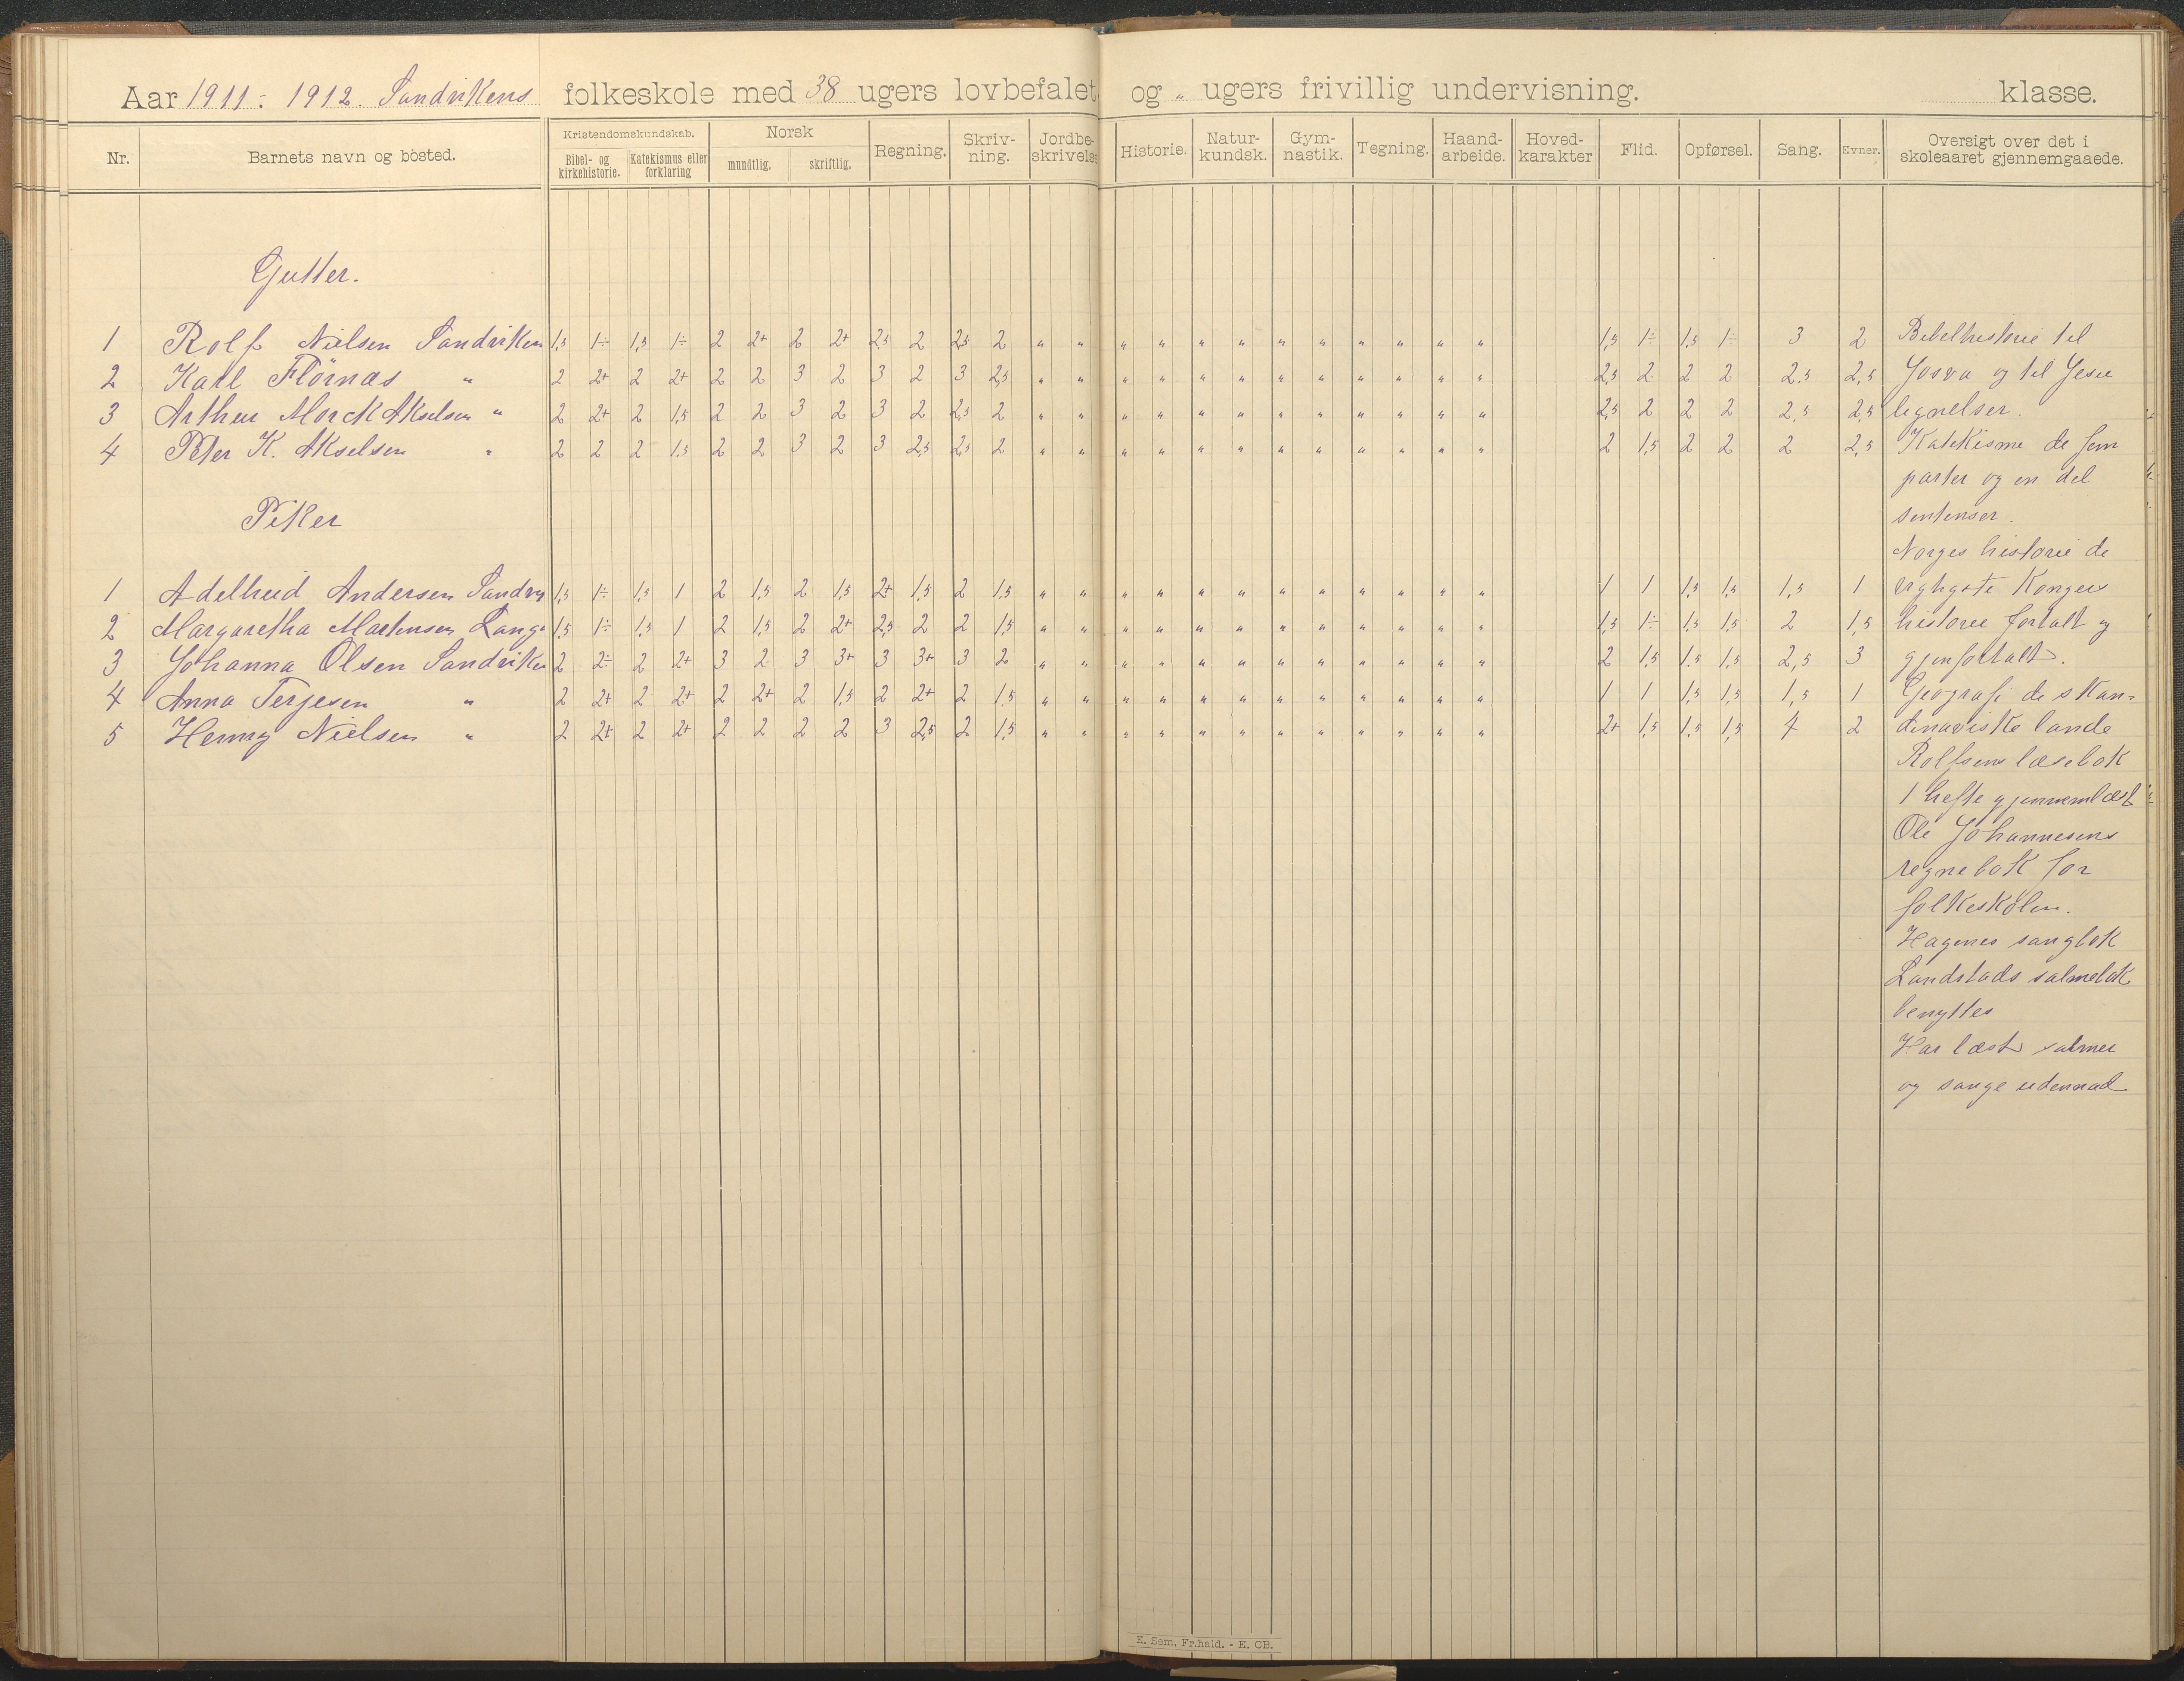 Aar 1911 - 1912. Sandvikens folkeskole med 38 ugers lovbefalet og " ugers frivillig undervisning. klasse.
Nr. Barnets navn og bosted. Kristendomskundskab. Bibel- og kirkehistorie. Katekismus eller forklaring Norsk mundtlig. skriftlig. Regning. Skriv-ning. Jordbe-skrivelse Historie. Natur-kundsk. Gym-nastik. Tegning. Haand-arbeide. Hoved-karakter Flid. Opførsel. Sang. Evner. Oversigt over det i skoleaaret gjennemgaaede.
Gutter.
1 Rolf Nielsen Sandviken 1,5 1÷ 1,5 1÷ 2 2+ 2 2+ 2,5 2 2,5 2 " " " " " " " " " " " " 1,5 1÷ 1,5 1÷ 3 2
2 Karl Flörnæs " 2 2+ 2 2+ 2 2 3 2 3 2 3 2,5 " " " " " " " " " " " " 2,5 2 2 2 2,5 2,5
3 Arthur Morck Akselsen " 2 2+ 2 1,5 2 2 3 2 3 2 2,5 2 " " " " " " " " " " " " 2,5 2 2 2 2,5 2,5
4 Peter K. Akselsen " 2 2 2 1,5 2 2 3 2 3 2,5 2,5 2 " " " " " " " " " " " " 2 1,5 2 2 2 2,5
Piker
1 Adelheid Andersen Sandv 1,5 1÷ 1,5 1 2 1,5 2 1,5 2+ 1,5 2 1,5 " " " " " " " " " " " " 1 1 1,5 1,5 1,5 1
2 Margaretha Martensen Lang 1,5 1÷ 1,5 1 2 1,5 2 2+ 2,5 2 2 1,5 " " " " " " " " " " " " 1,5 1÷ 1,5 1,5 2 1,5
3 Johanna Olsen Sandviken 2 2÷ 2 2+ 3 2 3 3+ 3 3+ 3 2 " " " " " " " " " " " " 2 1,5 1,5 1,5 2,5 3
4 Anna Terjesen " 2 2+ 2 2+ 2 2+ 2 1,5 2 2+ 2 1,5 " " " " " " " " " " " " 1 1 1,5 1,5 1,5 1
5 Henny Nielsen " 2 2+ 2 2+ 2 2 2 2 3 2,5 2 1,5 " " " " " " " " " " " " 2+ 1,5 1,5 1,5 4 2
Bibelhistorie til
Josva og til Jesu
lignelser.
Katekisme de fem
parter og en del
sentenser.
Norges historie de
vigtigste Kongers
historie fortalt og
gjenfortalt.
Geografi de skan-
dinaviske lande
Rolfsens læsebok
1 hefte gjennemlæst
Ole Johannesens
regnebok for
folkeskolen.
Hagenes sangbok
Landstads salmebok
benyttes
Har læst salmer
og sange udenad
E. Sem, Fr.hald. - E. CB.